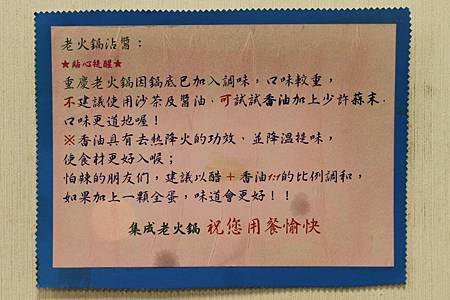 老火鍋沾醬：
★貼心提醒★
重慶老火鍋因鍋底已加入調味，口味較重，
不建議使用沙茶及醬油，可試試香油加上少許蒜末，
口味更道地喔！
※香油具有去熱降火的功效，並降溫提味，
使食材更好入喉；
怕辣的朋友们，建議以醋＋香油1:1的比例調和，
如果加上一顆全蛋，味道會更好！！
集成老火鍋 祝您用餐愉快